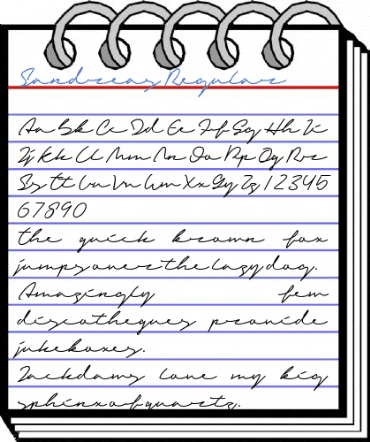 Sandreas Regular
Aa Bb Cc Dd Ee Ff Gg Hh Ii
Jj Kk Ll Mm Nn Oo Pp Qq Rr
Ss Tt Uu Vv Ww Xx Yy Zz 12345
67890
the quick brown fox
jumps over the lazy dog.
Amazingly few
discotheques provide
jukeboxes.
Jackdaws love my big
sphinx of quartz.